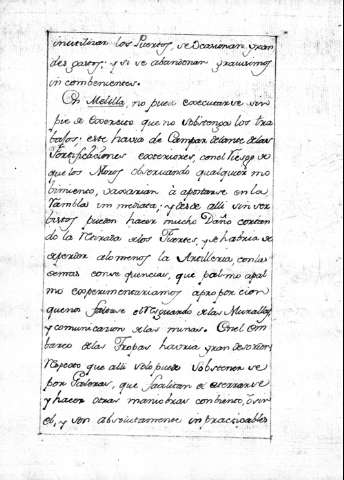 inutilizar los Puertos, se ocasionan gran
des gastos; y si se abandonan gravissimos
inconbenientes.
En Melilla, no puede executarse sin
pie de Exercito que no sobstenga los tra
bajos; este havia de Campar delante de las
fortificaciones exteriores, con el Riesgo de
que los Moros observando qualquier mo
bimiento, vaxarian à apostarse en la
Rambla inmediata, y desde alli sin ser
bistos pueden hacer mucho Daño cortan
do la Retirada de los Fuertes, y se habria de
perder a lo menos la Artilleria, con las
demas consequencias, que palmo a pal
mo experimentariamos a proporcion
que nos falte el Resguardo de las Murallas,
y comunicacion de las minas. En el Em
barco de las Tropas havria gran desorden
Respecto que alli solo puede
por Faloras, que facilitan el
y hacer otras maniobras con biento, ò sin
el, y son absolutamente inpracticables